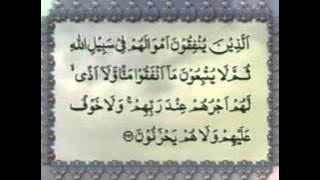 اَلَّذِيْنَ يُنْفِقُوْنَ اَمْوَالَهُمْ فِيْ سَبِيْلِ اللّٰهِ
ثُمَّ لَا يُتْبِعُوْنَ مَاۤ اَنْفَقُوْا مَنًّا وَّلَاۤ اَذًى ۙ
لَّهُمْ اَجْرُهُمْ عِنْدَ رَبِّهِمْ ۚ وَلَا خَوْفٌ
عَلَيْهِمْ وَلَا هُمْ يَحْزَنُوْنَ